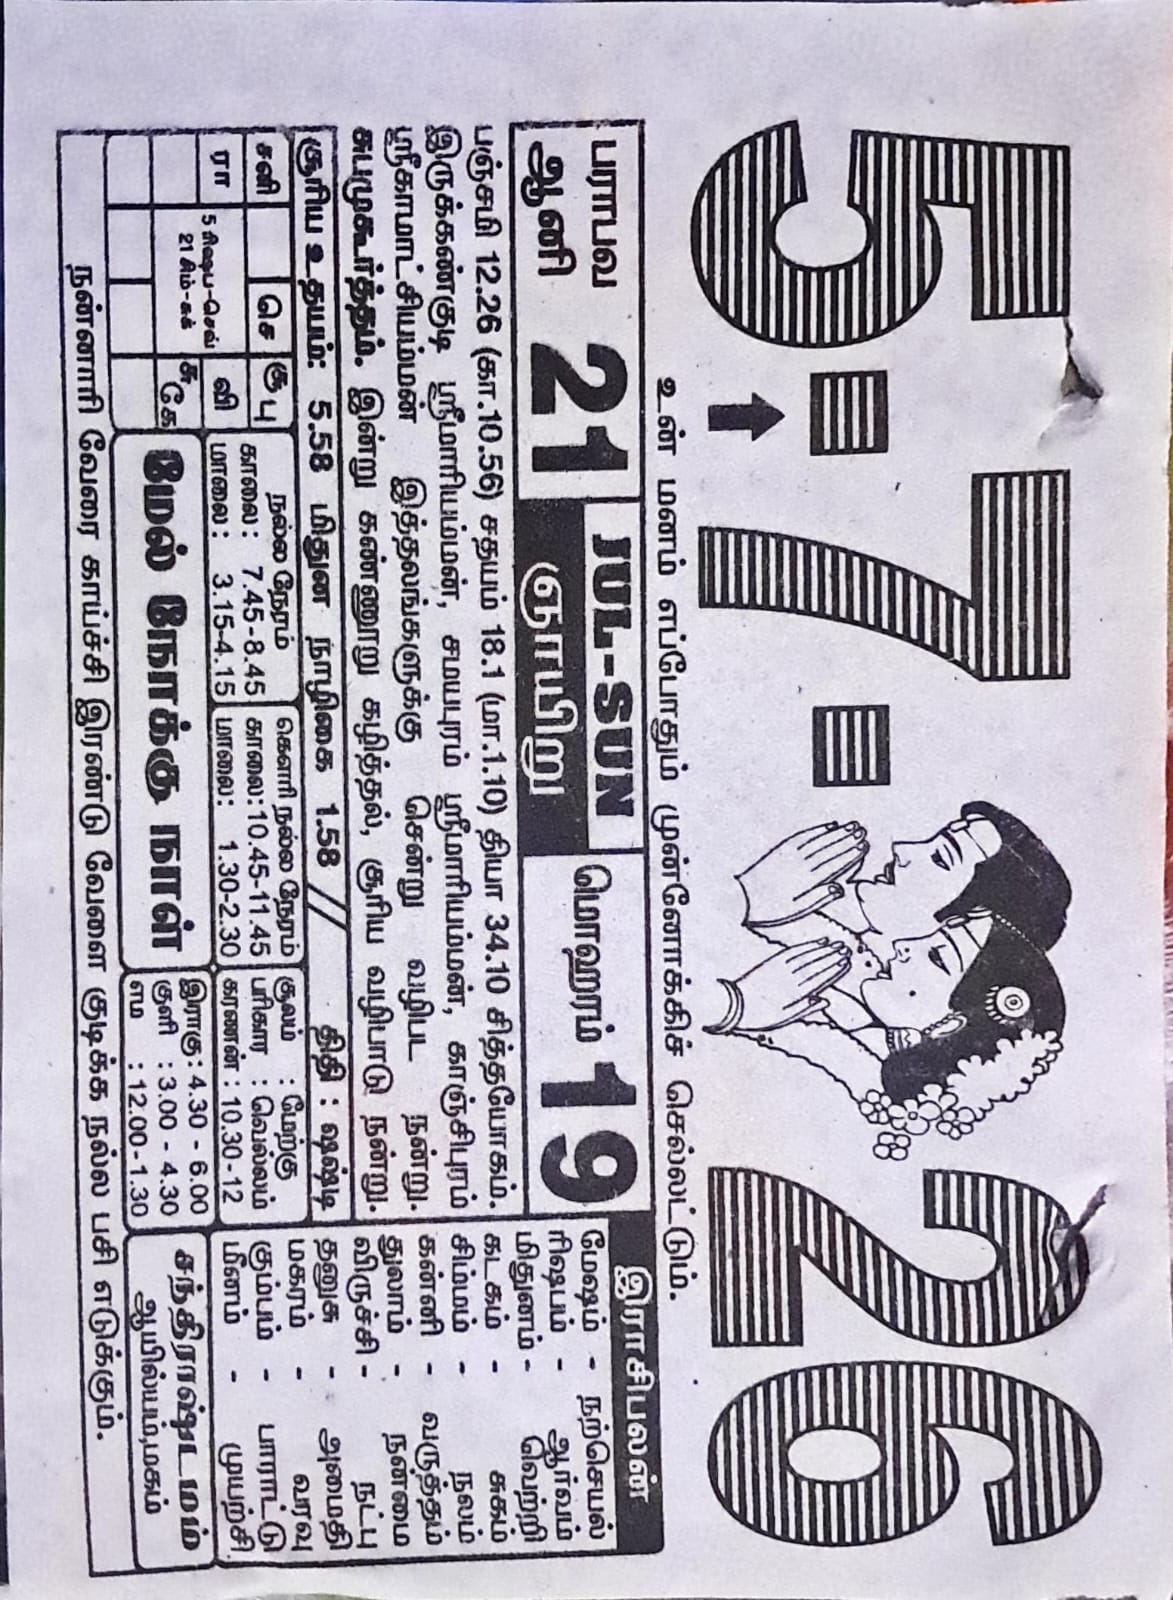 5-7-26
உன் மனம் எப்போதும் முன்னோக்கிச் செல்லட்டும்.
பராபவ
ஆனி 21
JUL-SUN
ஞாயிறு
மொஹரம் 19
பஞ்சமி 12.26 (கா.10.56) சதயம் 18.1 (மா.1.10) தியா 34.10 சித்தயோகம்.
இருக்கண்குடி ஸ்ரீமாரியம்மன், சமயபுரம் ஸ்ரீமாரியம்மன், காஞ்சிபுரம்
ஸ்ரீகாமாட்சியம்மன் இத்தலங்களுக்கு சென்று வழிபட நன்று.
சுபமுகூர்த்தம். இன்று கண்ணூறு கழித்தல், சூரிய வழிபாடு நன்று.
சூரிய உதயம்: 5.58 மிதுன நாழிகை 1.58 // திதி : ஷஷ்டி
இராசிபலன்
மேஷம் - நற்செயல்
ரிஷபம் - ஆர்வம்
மிதுனம் - வெற்றி
கடகம் - சுகம்
சிம்மம் - நலம்
கன்னி - வருத்தம்
துலாம் - நன்மை
விருச்சி - நட்பு
தனுசு - அமைதி
மகரம் - வரவு
கும்பம் - பாராட்டு
மீனம் - முயற்சி
சனி செ குபு
ரா வி
5 ரிஷப-செவ்
21 சிம்-சுக்
சுகே
நல்ல நேரம்
காலை: 7.45-8.45
மாலை: 3.15-4.15
கௌரி நல்ல நேரம்
காலை:10.45-11.45
மாலை: 1.30-2.30
சூலம் : மேற்கு
பரிகார : வெல்லம்
கரணன் : 10.30-12
மேல் நோக்கு நாள்
இராகு : 4.30 - 6.00
குளி : 3.00 - 4.30
எம : 12.00-1.30
சந்திராஷ்டமம்
ஆயில்யம்,மகம்
நன்னாரி வேரை காய்ச்சி இரண்டு வேளை குடிக்க நல்ல பசி எடுக்கும்.